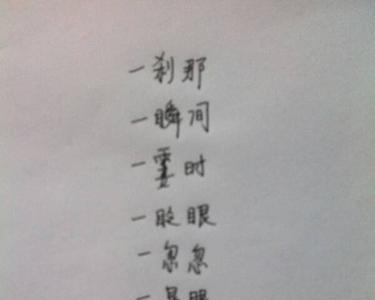 一刹那
一瞬间
一霎时
一眨眼
一忽忽
一晃眼